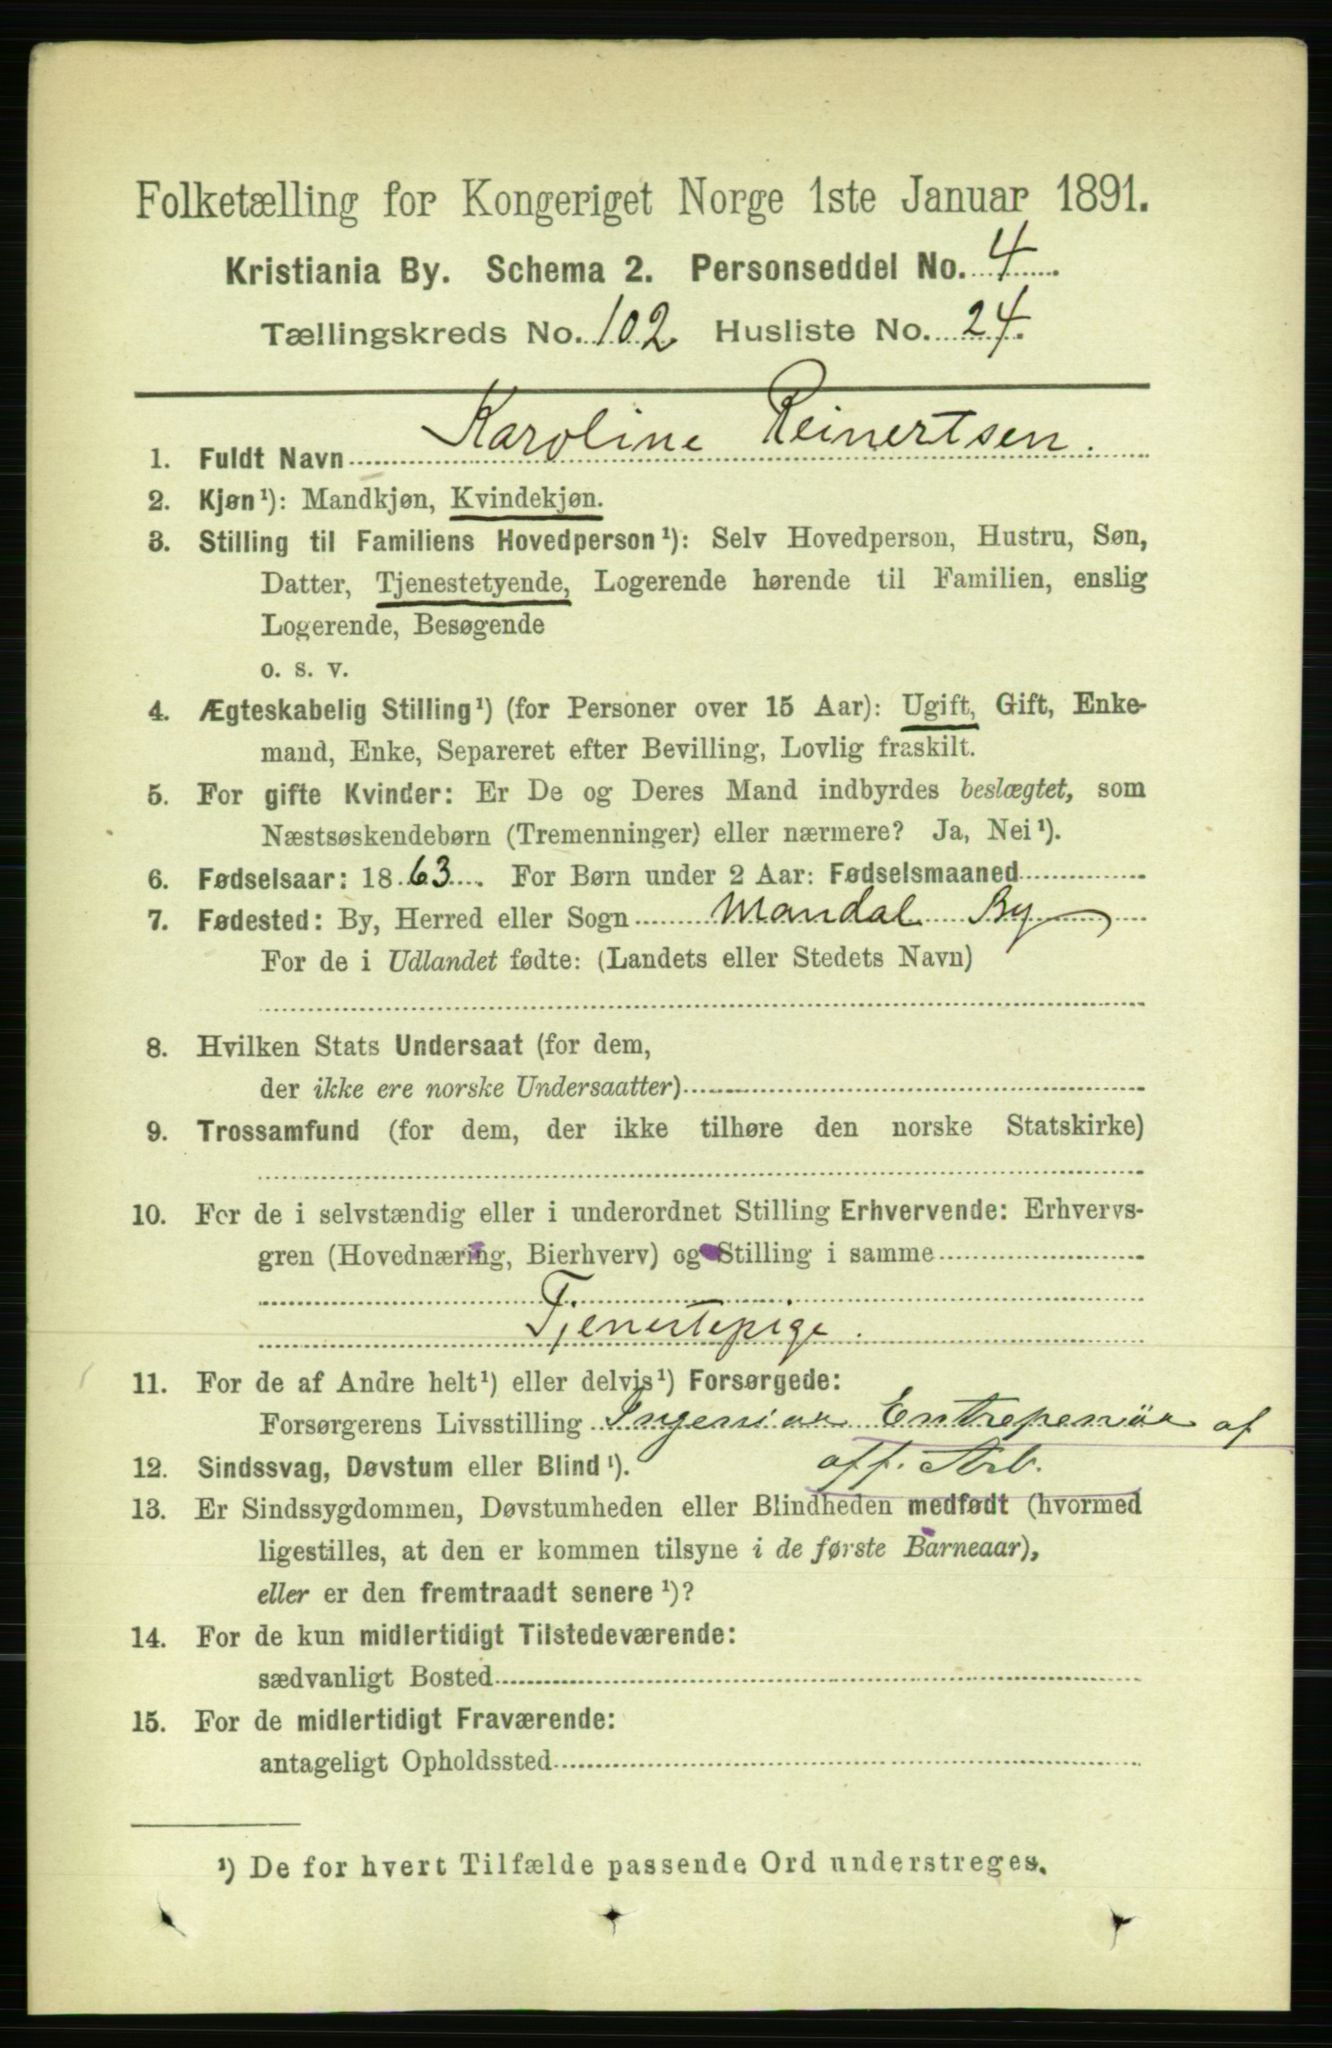 Folketælling for Kongeriget Norge 1ste Januar 1891.
Kristiania By. Schema 2. Personseddel No. 4
Tællingskreds No. 102 Husliste No. 24.
1. Fuldt Navn Karoline Reinertsen.
2. Kjøn¹): Mandkjøn, Kvindekjøn.
3. Stilling til Familiens Hovedperson¹): Selv Hovedperson, Hustru, Søn,
Datter, Tjenestetyende, Logerende hørende til Familien, enslig
Logerende, Besøgende
o. s. v.
4. Ægteskabelig Stilling¹) (for Personer over 15 Aar): Ugift, Gift, Enke-
mand, Enke, Separeret efter Bevilling, Lovlig fraskilt.
5. For gifte Kvinder: Er De og Deres Mand indbyrdes beslægtet, som
Næstsøskendebørn (Tremenninger) eller nærmere? Ja, Nei¹).
6. Fødselsaar: 1863. For Børn under 2 Aar: Fødselsmaaned
7. Fødested: By, Herred eller Sogn Mandal By
For de i Udlandet fødte: (Landets eller Stedets Navn)
8. Hvilken Stats Undersaat (for dem,
der ikke ere norske Undersaatter)
9. Trossamfund (for dem, der ikke tilhøre den norske Statskirke)
10. For de i selvstændig eller i underordnet Stilling Erhvervende: Erhvervs-
gren (Hovednæring, Bierhverv) og Stilling i samme
Tjenestepige.
11. For de af Andre helt¹) eller delvis¹) Forsørgede:
Forsørgerens Livsstilling Ingeniør Entrepenör af
off. Arb.
12. Sindssvag, Døvstum eller Blind¹).
13. Er Sindssygdommen, Døvstumheden eller Blindheden medfødt (hvormed
ligestilles, at den er kommen tilsyne i de første Barneaar),
eller er den fremtraadt senere¹)?
14. For de kun midlertidigt Tilstedeværende:
sædvanligt Bosted
15. For de midlertidigt Fraværende:
antageligt Opholdssted
¹) De for hvert Tilfælde passende Ord understreges.